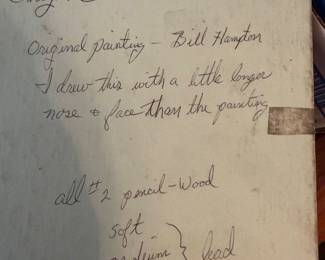 Original painting - Bill Hampton
I drew this with a little longer
nose & face than the painting
all #2 pencil-Wood
soft
medium } lead